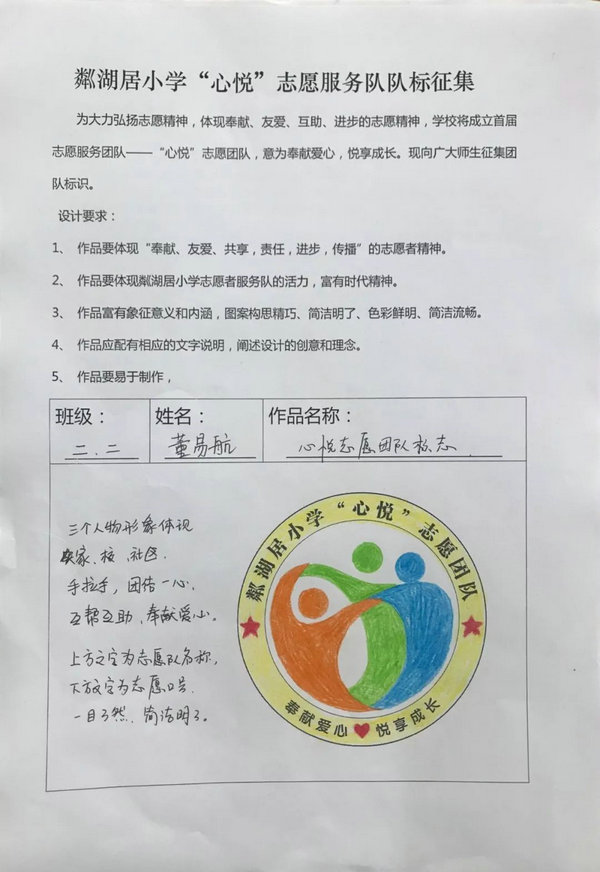 粼湖居小学“心悦”志愿服务队队标征集
为大力弘扬志愿精神，体现奉献、友爱、互助、进步的志愿精神，学校将成立首届
志愿服务团队——“心悦”志愿团队，意为奉献爱心，悦享成长。现向广大师生征集团
队标识。
设计要求：
1、 作品要体现“奉献、友爱、共享，责任，进步，传播”的志愿者精神。
2、 作品要体现粼湖居小学志愿者服务队的活力，富有时代精神。
3、 作品富有象征意义和内涵，图案构思精巧、简洁明了、色彩鲜明、简洁流畗。
4、 作品应配有相应的文字说明，阐述设计的创意和理念。
5、 作品要易于制作，
班级： 姓名： 作品名称：
二.二 董易航 心悦志愿团队标志
三个人物形象体现
家、校、社区.
手拉手，团结一心、
互帮互助、奉献爱心。
上方文字为志愿队名称，
下方文字为志愿口号.
一目了然、简洁明了。
粼湖居小学“心悦”志愿团队
奉献爱心 悦享成长